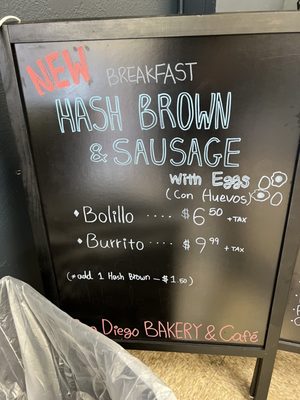 NEW BREAKFAST
HASH BROWN
& SAUSAGE
With Eggs
(Con Huevos)
• Bolillo .... $6.50 +TAX
• Burrito .... $9.99 +TAX
(*add 1 Hash Brown — $1.50)
Diego BAKERY & Café